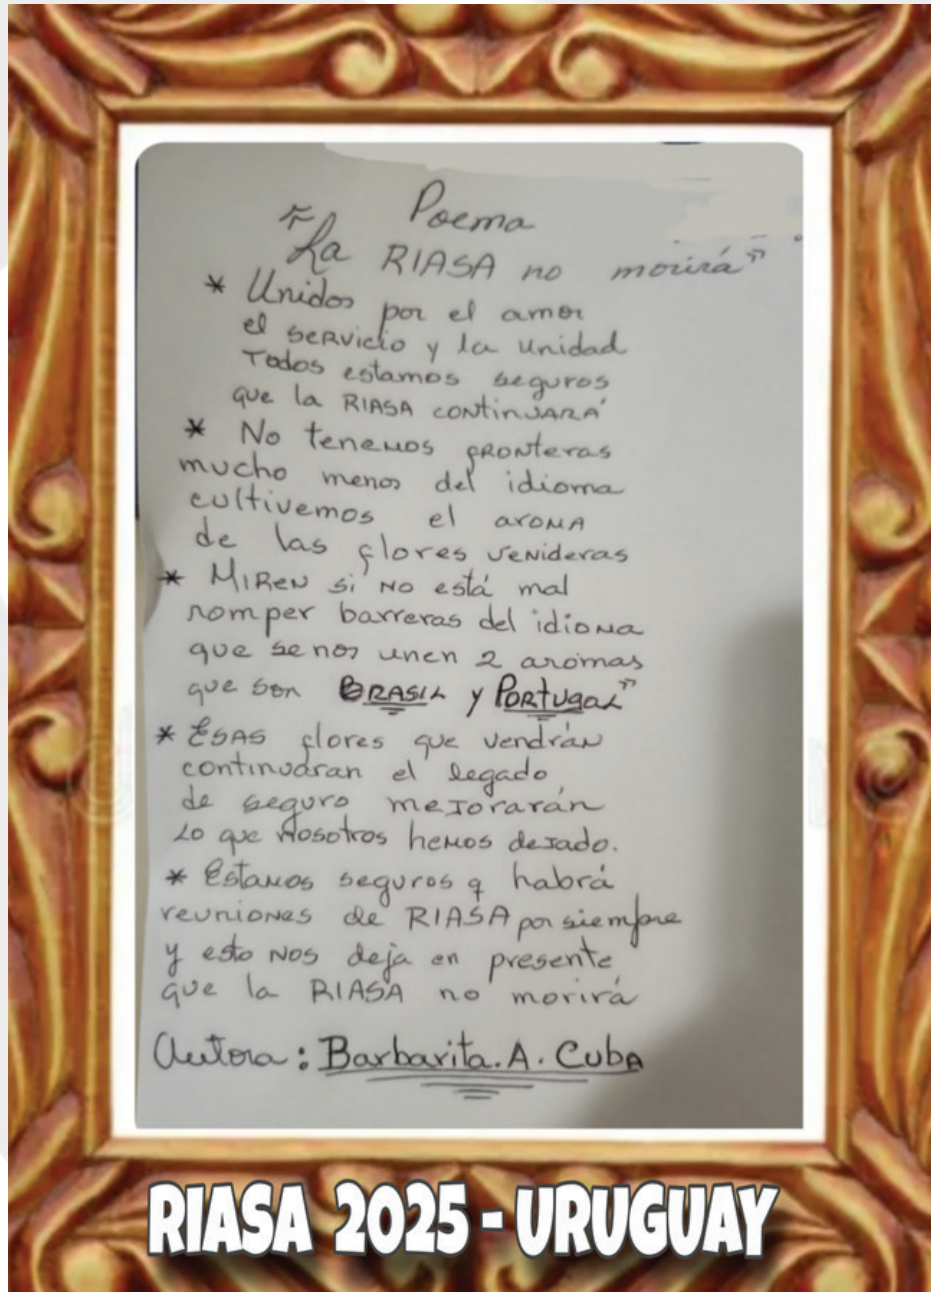 Poema
"La RIASA no morirá"
* Unidos por el amor
el servicio y la unidad
Todos estamos seguros
que la RIASA continuará
* No tenemos fronteras
mucho menos del idioma
cultivemos el aroma
de las flores venideras
* Miren si no está mal
romper barreras del idioma
que se nos unen 2 aromas
que son BRASIL y PORTUGAL"
* Esas flores que vendrán
continuaran el legado
de seguro mejorarán
Lo que nosotros hemos dejado.
* Estamos seguros q habrá
reuniones de RIASA por siempre
y esto nos deja en presente
que la RIASA no morirá
Autora: Barbarita. A. Cuba
RIASA 2025 - URUGUAY